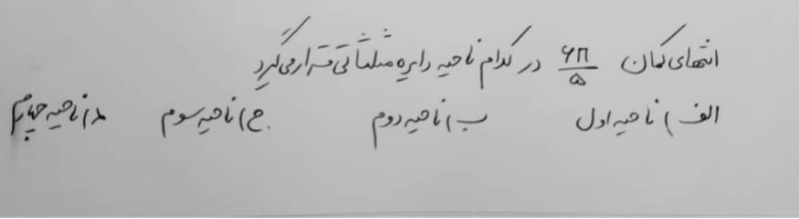 انتهای کمان ۶π/۵ در کدام ناحیه دایره مثلثاتی قرار می گیرد
الف) ناحیه اول ب) ناحیه دوم ج) ناحیه سوم د) ناحیه چهارم